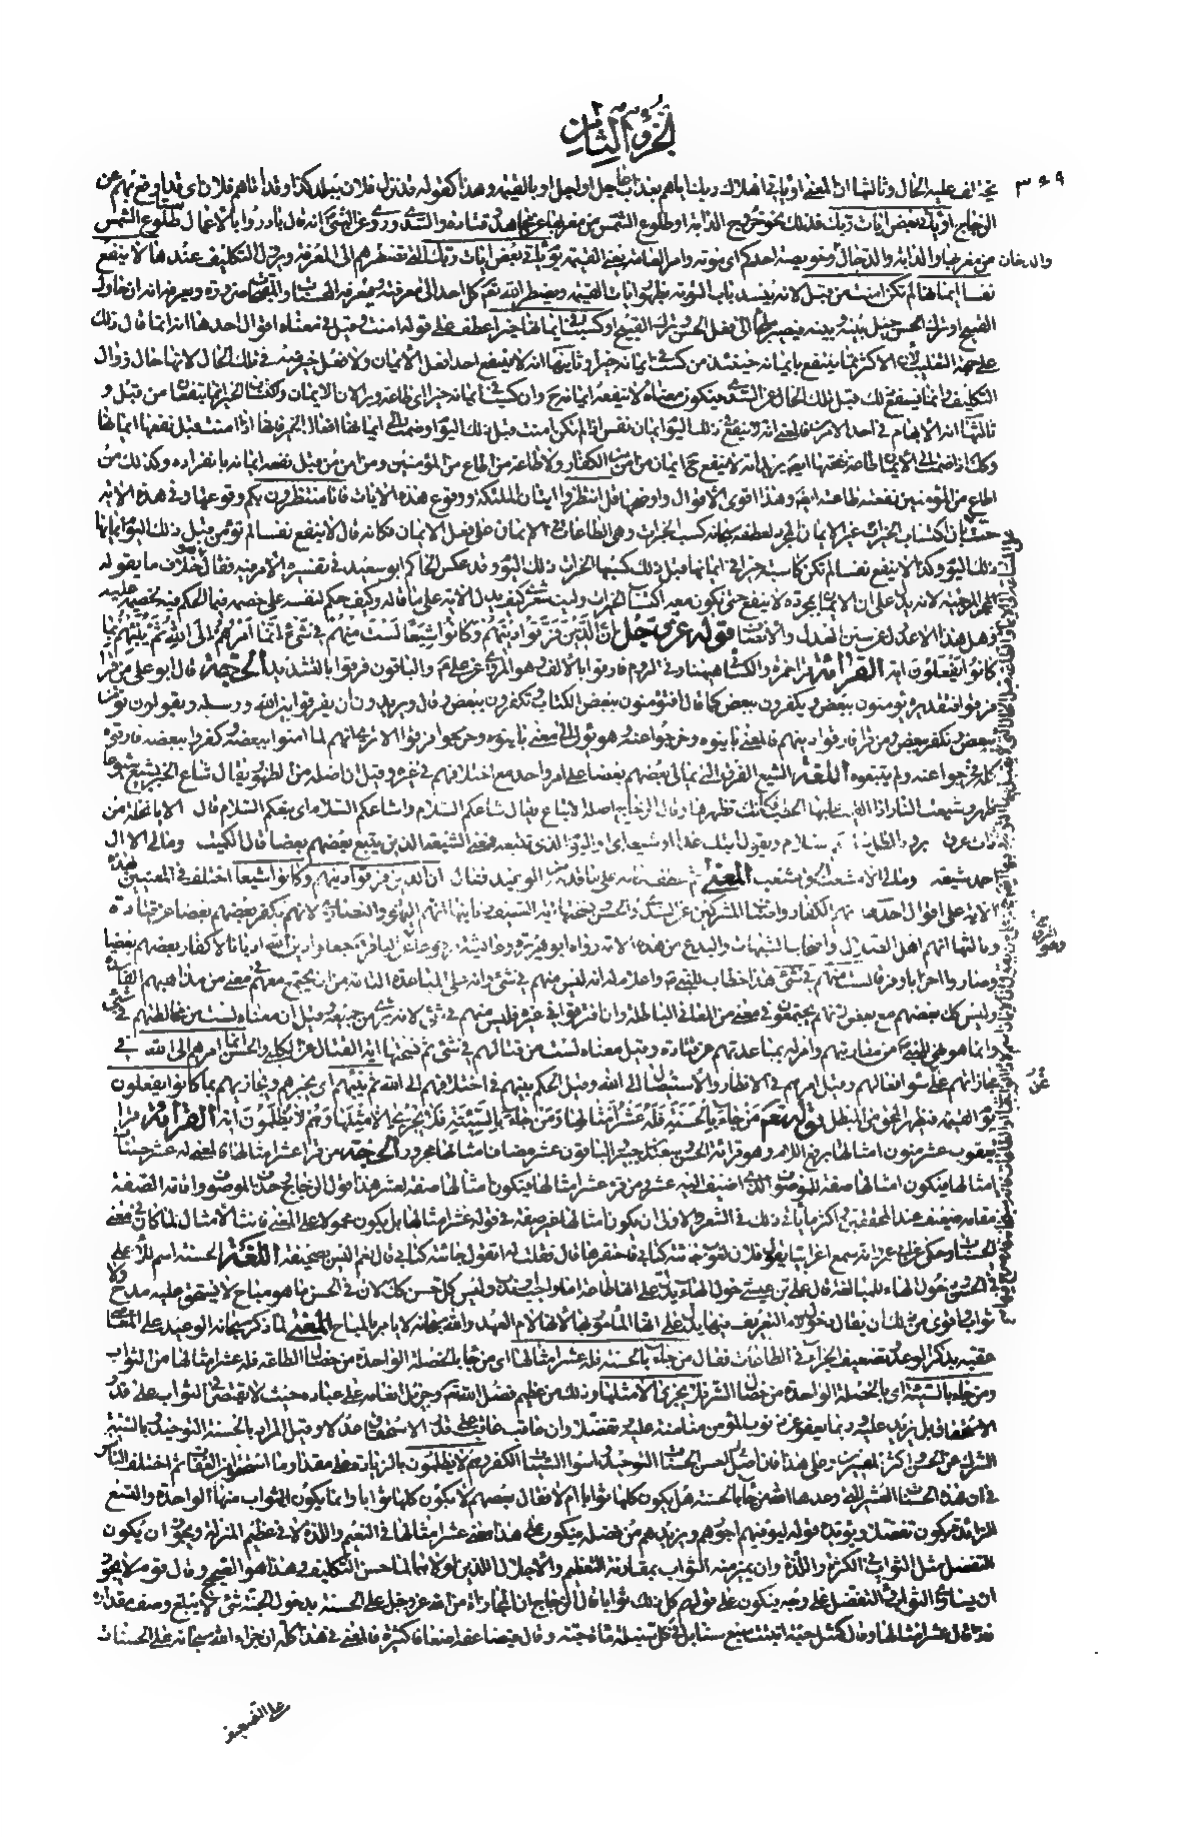 الجزؤ الثامن
۳۶۹
عليه الحال وثالثها ان المعنى او ياتي اهلاك ربك اياهم بعذاب عاجل او اجل او بالقيمة وهذا كقوله قد نزل فلان ببلد كذا وقد اتاهم فلان اى قد اوقع بهم عن
الزجاج او ياتي بعض ايات ربك فذلك نحو خروج الدابة او طلوع الشمس من مغربها عن مجاهد وقتادة والسدى وروى عن النبى انه قال بادروا بالاعمال ستا طلوع الشمس
من مغربها والدابة والدجال والدخان وخويصة احدكم اى موته وامر العامة يعنى القيمة يوم ياتي بعض ايات ربك التى تضطرهم الى المعرفة ويزول التكليف عندها لا ينفع
نفسا ايمانها لم تكن امنت من قبل لانه ينسد باب التوبة بظهور ايات القيمة ويضطر الله تعم كل احد الى معرفته ومعرفة المحسنات والمقبحات ضرورة ويعرفه انه ان حاول
القبيح او ترك الحسن حيل بينه وبينه فيصير ملجأ الى فعل الحسن وترك القبيح او كسبت فى ايمانها خيرا عطف على قوله امنت وقيل فى معناه اقوال احدها انه انما قال ذلك
على جهة التغليب لان الاكثر مما ينتفع بايمانه حينئذ من كسب فى ايمانه خيرا وثانيها انه لا ينفع احدا فعل الايمان ولا فعل خير فيه فى تلك الحال لانها حال زوال
التكليف وانما ينفع ذلك قبل تلك الحال عن السدى فيكون معناه لا تنفعه ايمانه ح وان كسب فى ايمانه خيرا اى طاعة وبرا لان الايمان واكتساب الخير انما ينفعان من قبل و
ثالثها انه الابهام فى احد الامرين فالمعنى انه لا ينفع فى ذلك اليوم ايمان نفس اذا لم تكن امنت قبل ذلك اليوم او ضمت الى ايمانها افعال الخير فانها اذا امنت قبل نفعها ايمانها
وكذا اذا ضمت الى الايمان طاعة نفعتها ايضا يريد انه لا ينفع ح ايمان من امن من الكفار ولا طاعة من اطاع من المؤمنين ومن امن من قبل نفعه ايمانه بانفراده وكذلك من
اطاع من المؤمنين نفعته طاعته ايضا وهذا اقوى الاقوال واوضحها قل انتظروا اتيان الملئكة ووقوع هذه الايات فانا منتظرون بكم وقوعها وفى هذه الاية
حث بان اكتساب الخيرات غير الايمان المجرد لعطفه سبحانه كسب الخيرات وهى الطاعات فى الايمان على فعل الايمان فكانه قال لا ينفع نفسا لم تؤمن قبل ذلك اليوم ايمانها
ذلك اليوم وكذا لا ينفع نفسا لم تكن كاسبة خيرا فى ايمانها قبل ذلك كسبها الخيرات ذلك اليوم وقد عكس الحاكم ابو سعيد فى تفسيره الامر فيه فقال هو خلاف ما يقوله
لانه يدل على ان الايمان بمجرده لا ينفع حتى يكون معه اكتساب الخيرات وليت شعرى كيف يدل الاية على ما قاله وكيف حكم لنفسه على خصمه فيما الحكم فيه لخصمه عليه
وهل هذا الا عدول عن سنن العدل والانصاف قوله عز وجل ان الذين فرقوا دينهم وكانوا شيعا لست منهم فى شىء انما امرهم الى الله ثم ينبئهم بما
كانوا يفعلون اية القراءة قرا حمزة والكسائى هيهنا وفى الروم فارقوا بالالف وهو المروى عن على ع والباقون فرقوا بالتشديد الحجة قال ابو على من قرا
فرقوا فتقديره يؤمنون ببعض ويكفرون ببعض كما قال افتؤمنون ببعض الكتاب وتكفرون ببعض وقال ويريدون ان يفرقوا بين الله ورسله ويقولون نؤمن
ببعض ونكفر ببعض ومن قرا فارقوا دينهم فالمعنى باينوه وخرجوا عنه وهو يؤل الى معنى باينوه وخرجوا من فرقوا الا ترى انهم لما امنوا ببعضه وكفروا ببعضه فارقوه
كله فخرجوا عنه ولم يتبعوه اللغة الشيع الفرق التى يمالى بعضهم بعضا على امر واحد مع اختلافهم فى غيره وقيل ان اصله من الظهور يقال شاع الخبر يشيع شيوعا
ظهر وشيعت النار اذا القيت عليها الحطب فكانك تظهرها وقال الزجاج اصله الاتباع يقال شاعكم السلام واشاعكم السلام اى تبعكم السلام قال الا يا نخلة من
ذات عرق برود الظل سلام ويقول اتيتك غدا او شيعه اى واليوم الذى يتبعه فمعنى الشيعة الذين يتبع بعضهم بعضا قال الكميت ومالى الا ال
احمد شيعة ومالى الا مشعب الحق مشعب المعنى ثم عطف سبحانه على ما قدمه من الوعيد فقال ان الذين فرقوا دينهم وكانوا شيعا اختلف فى المعنيين بهذه
الاية على اقوال احدها انهم الكفار واصناف المشركين عن السدى والحسن ونسختها اية السيف وثانيها انهم اليهود والنصارى لانهم يكفر بعضهم بعضا عن قتادة
وثالثها انهم اهل الضلال واصحاب الشبهات والبدع من هذه الامة رواه ابو هريرة وعائشة وهو المروى عن الباقر جعلوا دين الله اديانا لاكفار بعضهم بعضا
وصاروا احزابا وفرقا لست منهم فى شىء هذا خطاب للنبى ص واعلام له انه ليس منهم فى شىء وانه على المباعدة التامة من ان يجتمع معهم فى معنى من مذاهبهم الفاسدة
وليس كذلك بعضهم مع بعض لانهم يجتمعون فى معنى من المعانى الباطلة وان افترقوا فى غيره فليس منهم فى شىء لانه برىء من جميعه وقيل ان معناه لست من مخالطتهم فى شىء
وانما هو نهى للنبى ع من مقاربتهم وامر له بمباعدتهم عن قتادة وقيل معناه لست من قتالهم فى شىء ثم نسختها اية القتال عن الكلبى والحسن انما امرهم الى الله فى
مجازاتهم على سوء افعالهم وقيل امرهم فى الانظار والاستيصال الى الله وقيل الحكم بينهم فى اختلافهم الى الله ثم ينبئهم اى يخبرهم ويجازيهم بما كانوا يفعلون
يوم القيمة فيظهر المحق من المبطل قوله تعم من جاء بالحسنة فله عشر امثالها ومن جاء بالسيئة فلا يجزى الا مثلها وهم لا يظلمون اية القراءة قرا
يعقوب عشر منون امثالها برفع اللام وهو قراءة الحسن وسعيد بن جبير الباقون عشر مضاف امثالها مجرور الحجة من قرا عشر امثالها فالمعنى له عشر حسنات
امثالها فيكون امثالها صفة للموصوف الذى اضيف اليه عشر ومن قرء عشر امثالها فيكون امثالها صفة لعشر هذا قول الزجاج وحذف الموصوف واقامة الصفة
مقامه ضعيف عند المحققين واكثر ما ياتى ذلك فى الشعر والاولى ان يكون امثالها غير صفة فى قوله عشر امثالها بل يكون محمولا على المعنى فانث الامثال لما كان فى معنى
الحسنات وحكى عن ابى عمرو انه سمع اعرابيا يقول فلان لغوب جائته كتابى فاحتقرها قال فقلت له اتقول جائته كتابى قال نعم اليس بصحيفة اللغة الحسنة اسم للاعلى
فى الحسن ودخول الهاء للمبالغة قال على بن عيسى دخول الهاء يدل على انها طاعة اما واجب او ندب وليس كل حسن كذلك لان فى الحسن ما هو مباح لا يستحق عليه مدح ولا
ثواب واقوى من ذلك ان يقال دخول لام التعريف فيها يدل على انها المامور بها لان لام العهد والله سبحانه لا يامر بالمباح المعنى لما ذكر سبحانه الوعيد على المعاصى
عقبه بذكر الوعد وتضعيف الجزاء فى الطاعات فقال من جاء بالحسنة فله عشر امثالها اى من جاء بالخصلة الواحدة من خصال الطاعة فله عشر امثالها من الثواب
ومن جاء بالسيئة اى بالخصلة الواحدة من خصال الشر فلا يجزى الا مثلها وذلك من عظيم فضل الله تعم وجزيل انعامه على عباده حيث لا يقتصر فى الثواب على قدر
الاستحقاق بل يزيد عليه وربما يعفو عن ذنوب المؤمن منا منه عليه وتفضلا وان عاقب عاقب على قدر الاستحقاق عدلا وقيل المراد بالحسنة التوحيد وبالسيئة
الشرك عن الحسن واكثر المفسرين وعلى هذا فان اصل الحسنات التوحيد واسوأ السيئات الكفر وهم لا يظلمون بالزيادة على مقدار ما استحقوا من العقاب ثم اختلف الناس
فى ان هذه الحسنات العشر التى وعدها الله من جاء بالحسنة هل يكون كلها ثوابا ام لا فقال بعضهم لا يكون كلها ثوابا وانما يكون الثواب منها الواحدة والتسع
الزائدة يكون تفضلا ويؤيده قوله ليوفيهم اجورهم ويزيدهم من فضله فيكون على هذا معنى عشر امثالها فى النعيم واللذة لا فى عظيم المنزلة ويجوز ان يكون
التفضل مثل الثواب فى الكثرة واللذة وان يميز منه الثواب بمقارنة التعظيم والاجلال اللذين لولاهما لما حسن التكليف وهذا هو الصحيح وقال قوم لا يجوز
ان يساوى الثواب فى التفضل على وجه فيكون على قولهم كل ذلك ثوابا قال الزجاج ان المجازاة من الله عز وجل على الحسنة بدخول الجنة شىء لا يبلغ وصف مقداره
فاذا قال عشر امثالها وقال كمثل حبة انبتت سبع سنابل فى كل سنبلة مائة حبة وقال فيضاعفه اضعافا كثيرة فالمعنى فى هذا كله ان جزاء الله سبحانه على الحسنات
على التضعيف